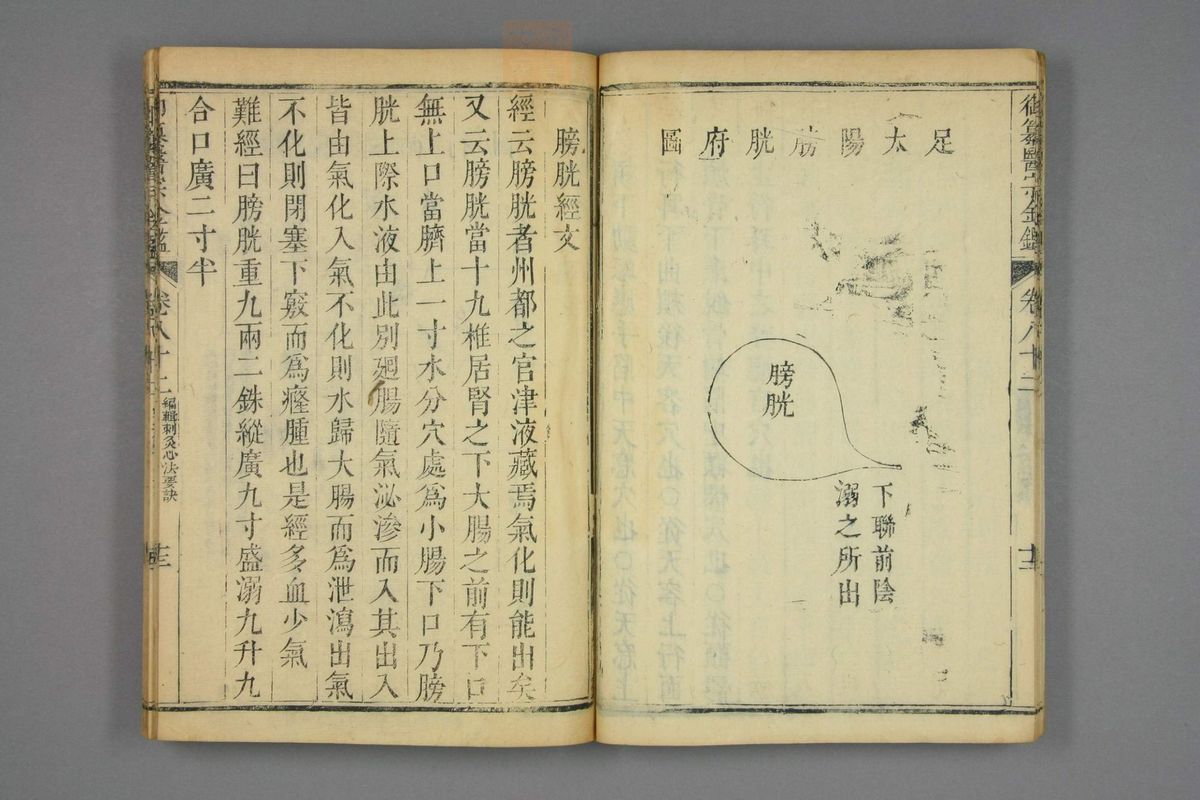 御纂醫宗金鑑 卷八十二
足太陽膀胱府圖
膀胱
下聯前陰
溺之所出
膀胱經文
經云膀胱者州都之官津液藏焉氣化則能出矣
又云膀胱當十九椎居腎之下大腸之前有下口
無上口當臍上一寸水分穴處為小腸下口乃膀
胱上際水液由此別廻腸隨氣泌滲而入其出入
皆由氣化入氣不化則水歸大腸而為泄瀉出氣
不化則閉塞下竅而為癃腫也是經多血少氣
難經曰膀胱重九兩二銖縱廣九寸盛溺九升九
合口廣二寸半
御纂醫宗金鑑 卷八十二 編輯刺灸心法要訣